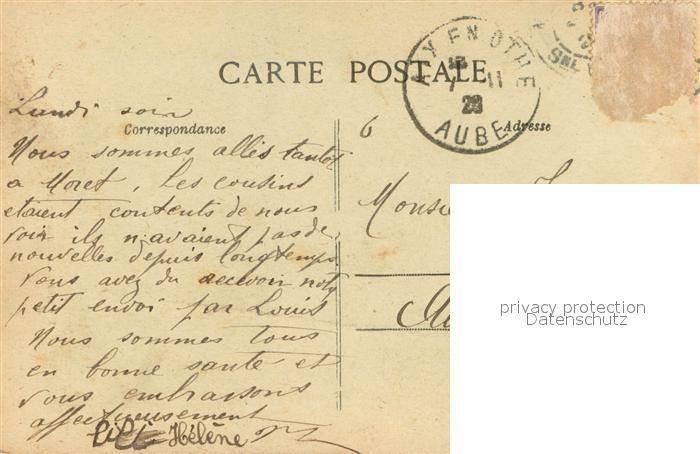 CARTE POSTALE
AIX EN OTHE
7 11
22
AUBE
Correspondance
Adresse
Lundi soir
Nous sommes allés tantot
a Moret, Les cousins
etaient contents de nous
voir ils n'avaient pas de
nouvelles depuis longtemps.
Vous avez du recevoir notre
petit envoi par Louis
Nous sommes tous
en bonne santé et
vous embrassons
affectueusement
Lili Hélène
6
Monsie
privacy protection
Datenschutz